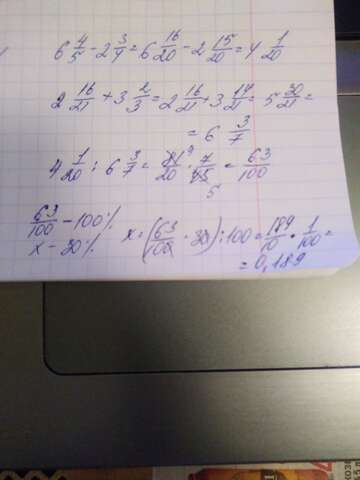 6 4/5 - 2 3/4 = 6 16/20 - 2 15/20 = 4 1/20
2 16/21 + 3 2/3 = 2 16/21 + 3 14/21 = 5 30/21 =
= 6 3/7
4 1/20 : 6 3/7 = 81 9/20 · 7/45 5 = 63/100
63/100 - 100%
x - 30% x = (63/100 · 30) : 100 = 189/10 · 1/100 =
= 0,189